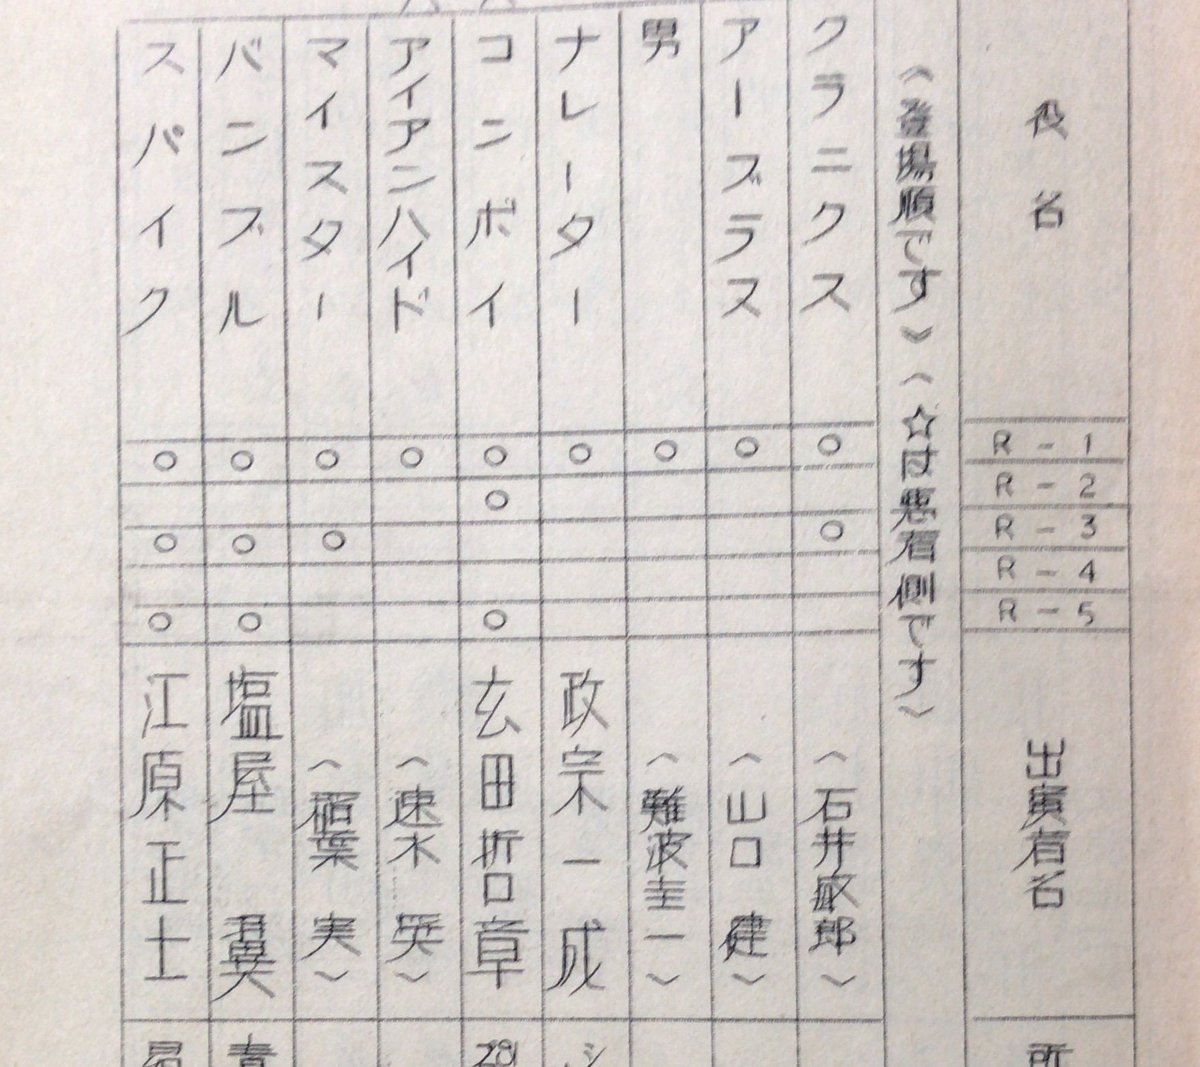 役名 R-1 R-2 R-3 R-4 R-5 出演者名 所
《登場順です》《☆は悪者側です》
クラニクス ○ ○ (石井敏郎)
アーブラス ○ (山口 健)
男 ○ (難波圭一)
ナレーター ○ 政宗一成 シ
コンボイ ○ ○ ○ 玄田哲章 281
アイアンハイド ○ (速水 奨)
マイスター ○ ○ (稲葉 実)
バンブル ○ ○ ○ 塩屋 翼 青
スパイク ○ ○ ○ 江原正士